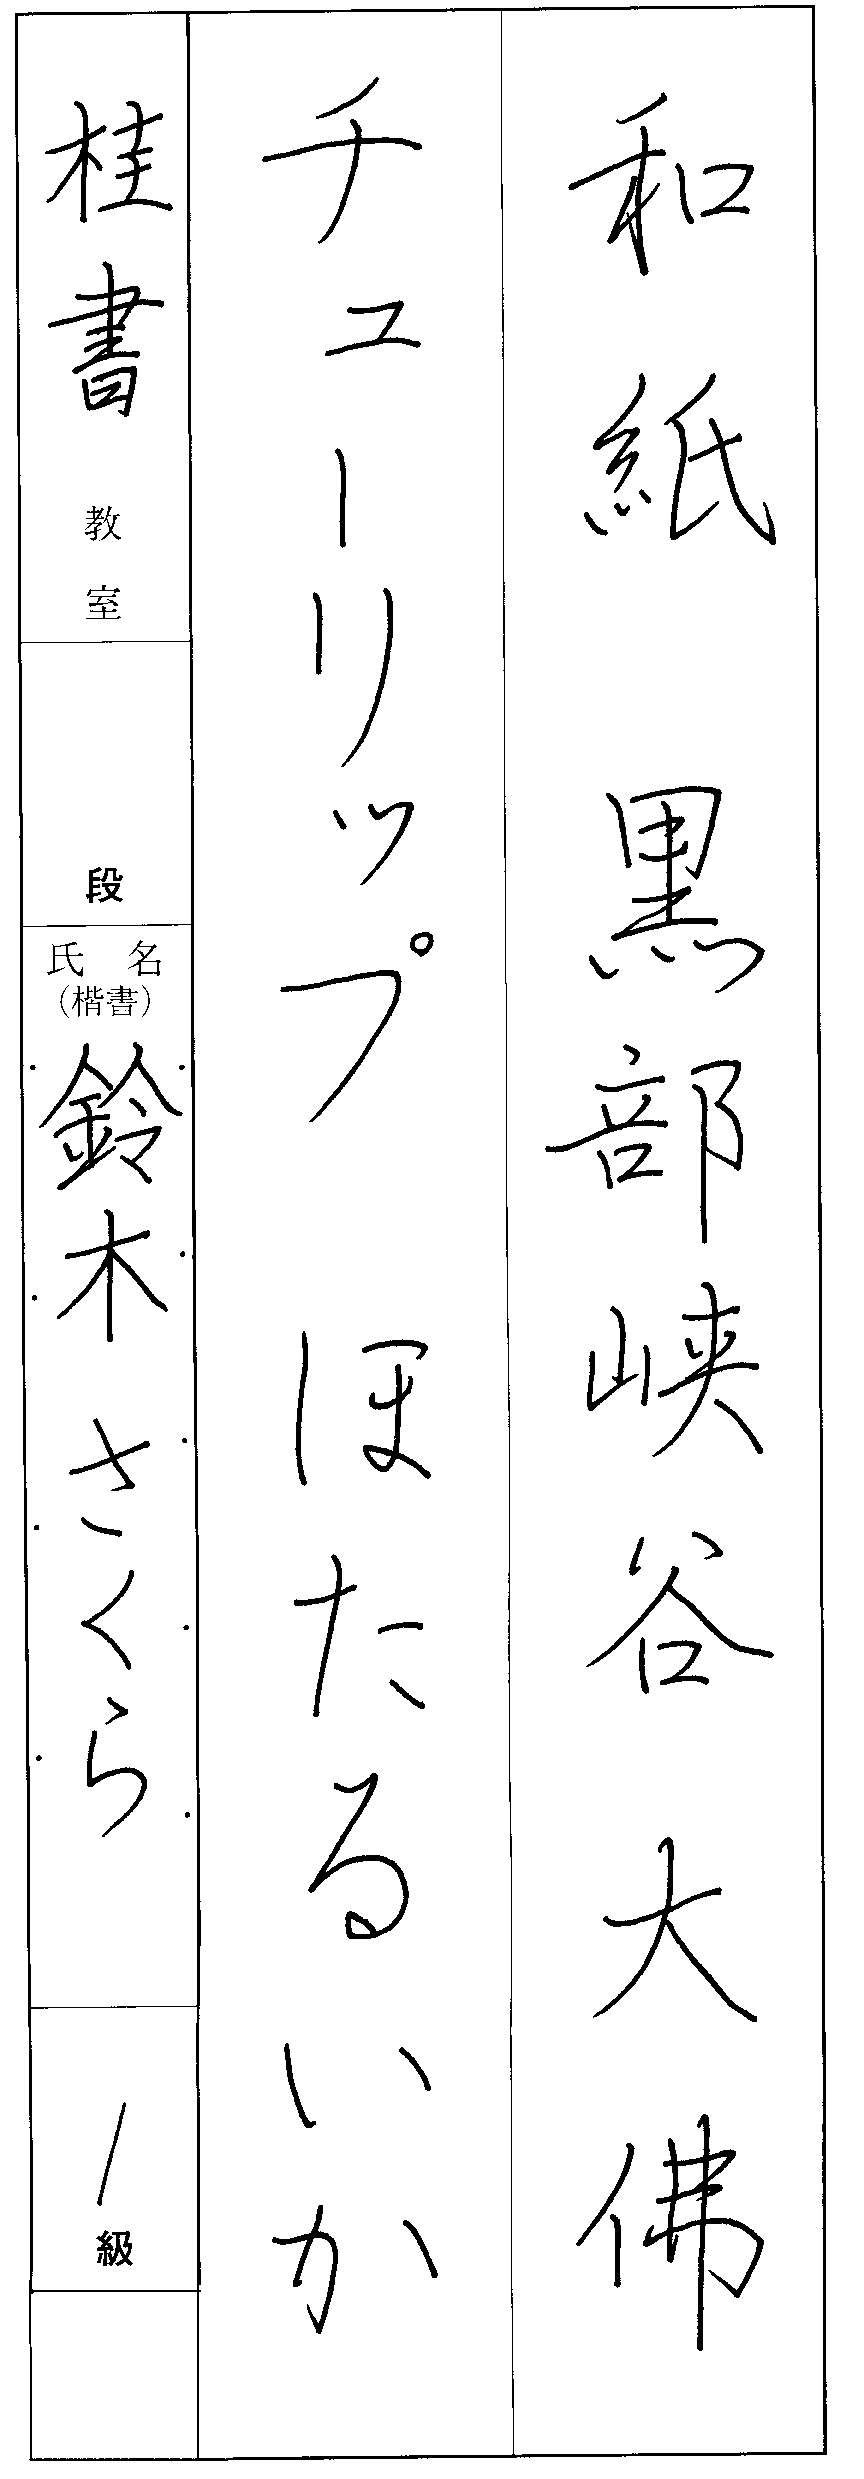 和紙 黒部峡谷 大佛
チューリップ ほたるいか
桂書教室
段
氏名
(楷書)
鈴木さくら
1級